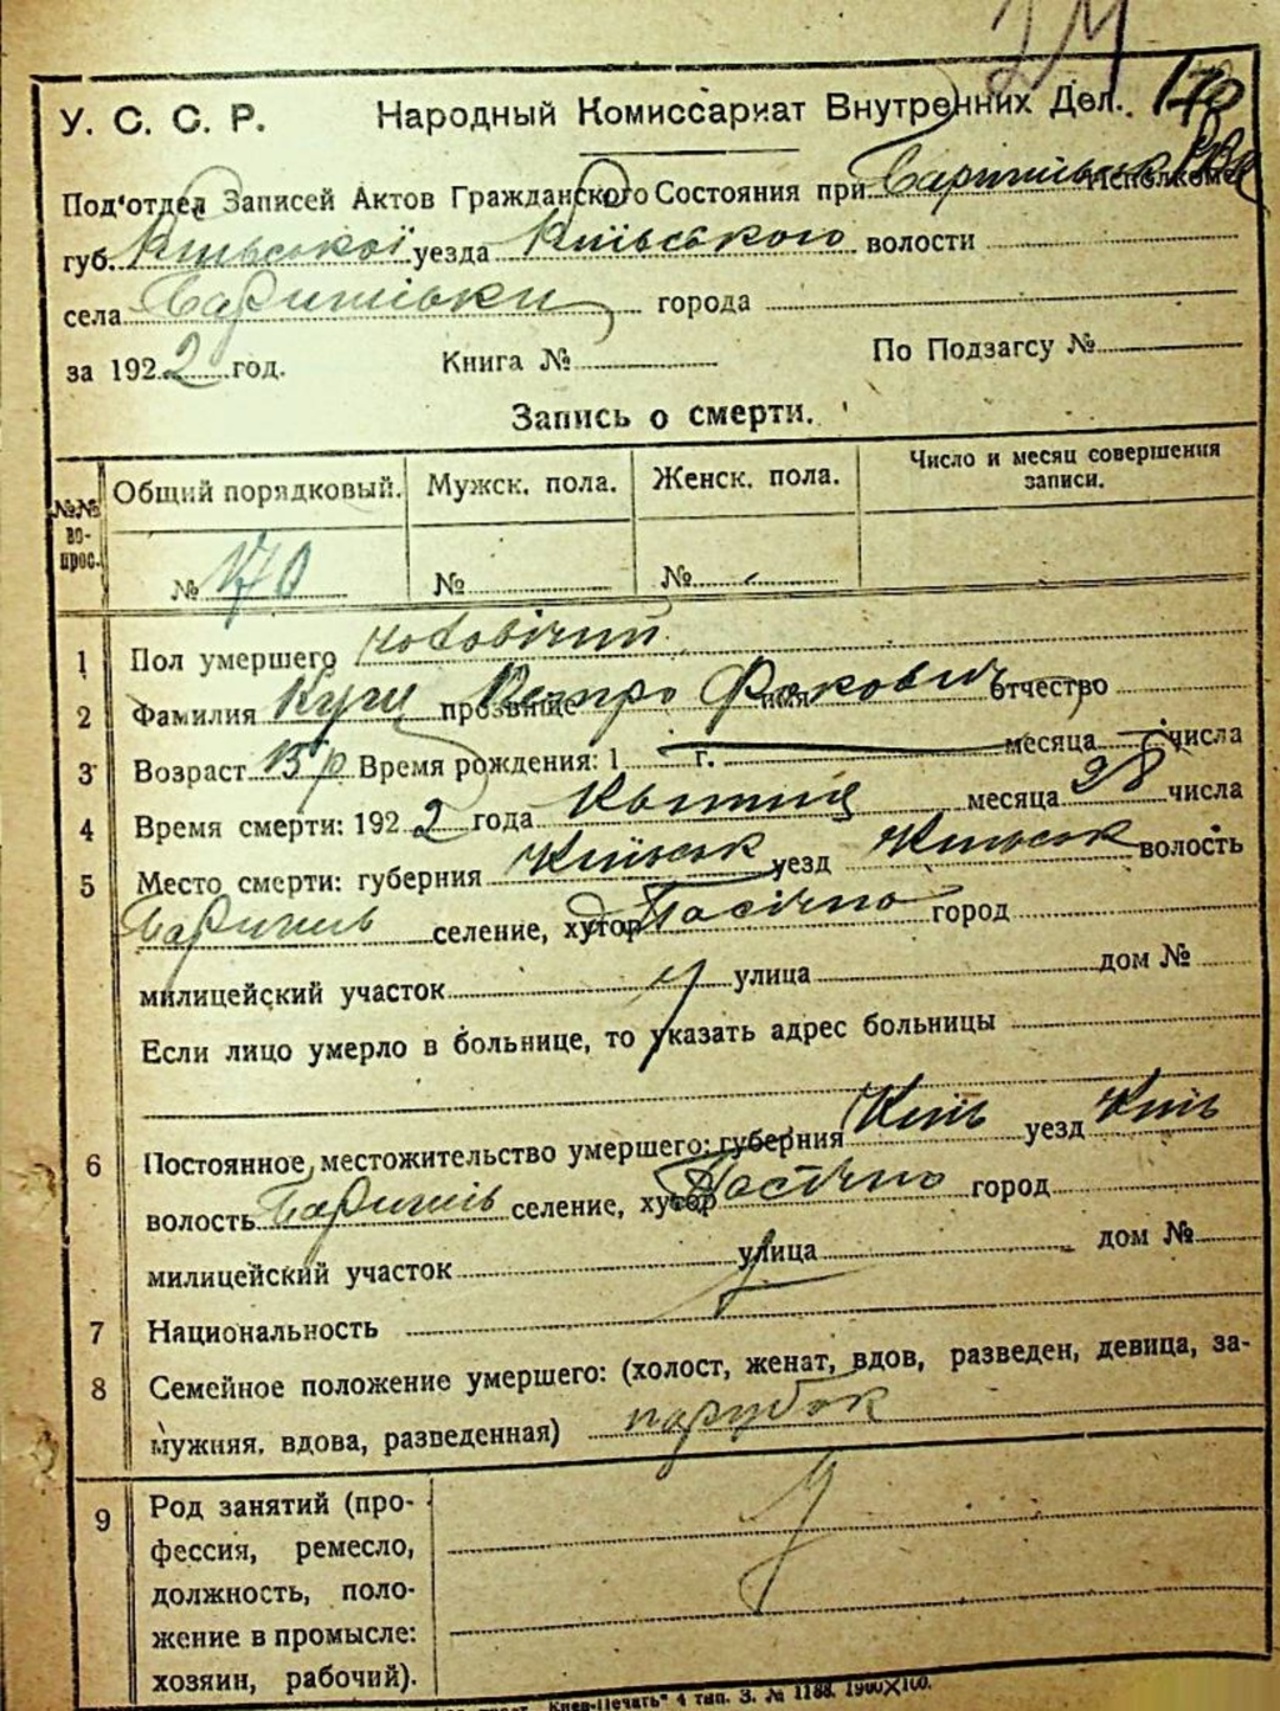 24
У. С. С. Р. Народный Комиссариат Внутренних Дел. 170
Под'отдел Записей Актов Гражданского Состояния при Баришівськ Исполкоме
губ. Київської уезда Київського волости
села Баришівки города
за 1922 год. Книга № По Подзагсу №
Запись о смерти.
№№ вопрос. Общий порядковый. Мужск. пола. Женск. пола. Число и месяц совершения записи.
№ 170 № №
1 Пол умершего чоловічий
2 Фамилия Куц прозвище Петро имя Фокович отчество
3 Возраст 15 р Время рождения: 1 г. месяца числа
4 Время смерти: 1922 года Квітня месяца 28 числа
5 Место смерти: губерния Київськ уезд Київськ волость
Баришів селение, хутор Пасічна город
милицейский участок улица дом №
Если лицо умерло в больнице, то указать адрес больницы
6 Постоянное местожительство умершего: губерния Київ уезд Київ
волость Баришів селение, хутор Пасічна город
милицейский участок улица дом №
7 Национальность
8 Семейное положение умершего: (холост, женат, вдов, разведен, девица, за-
мужняя, вдова, разведенная) парубок
9 Род занятий (про-
фессия, ремесло,
должность, поло-
жение в промысле:
хозяин, рабочий).
"Киев-Печать" 4 тип. З. № 1188. 1900Х100.